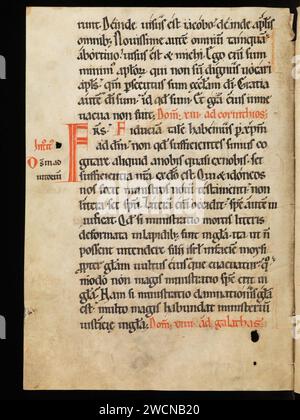 runt. Deinde uisus est iacobo. deinde aplis
omnib; Nouissime autē omniū tamquā
abortiuo uisus est & michi. Ego enī sum
minim' aplor. qui non sū dignus uocari
apls. qm psecutus sum ecclam dī. Gratia
autē dī sum id qd sum. & gra ei' in me
uacua non fuit. Dom. xiii. ad corinthios.
Frs. Fiduciam talē habemus p xpm
ad dm. non qd sufficientes simus co
gitare aliquid a nobis quasi ex nobis. sed
sufficientia nra ex do est. Qui & idoneos
nos fecit ministros noui testamenti. non
littera sed spu. littera enī occidit. sps autē ui
uificat. Qd si ministratio mortis litteris
deformata in lapidib; fuit in gla. ita ut ñ
possent intendere filii isrl in faciē moysi
ppter glam uultus eius que euacuatur. quo
modo non magis ministratio sps erit in
gla. Nam si ministratio damnationis gla
est. multo magis habundat ministeriū
iusticie in gla. Dom. xiiii. ad galathas.